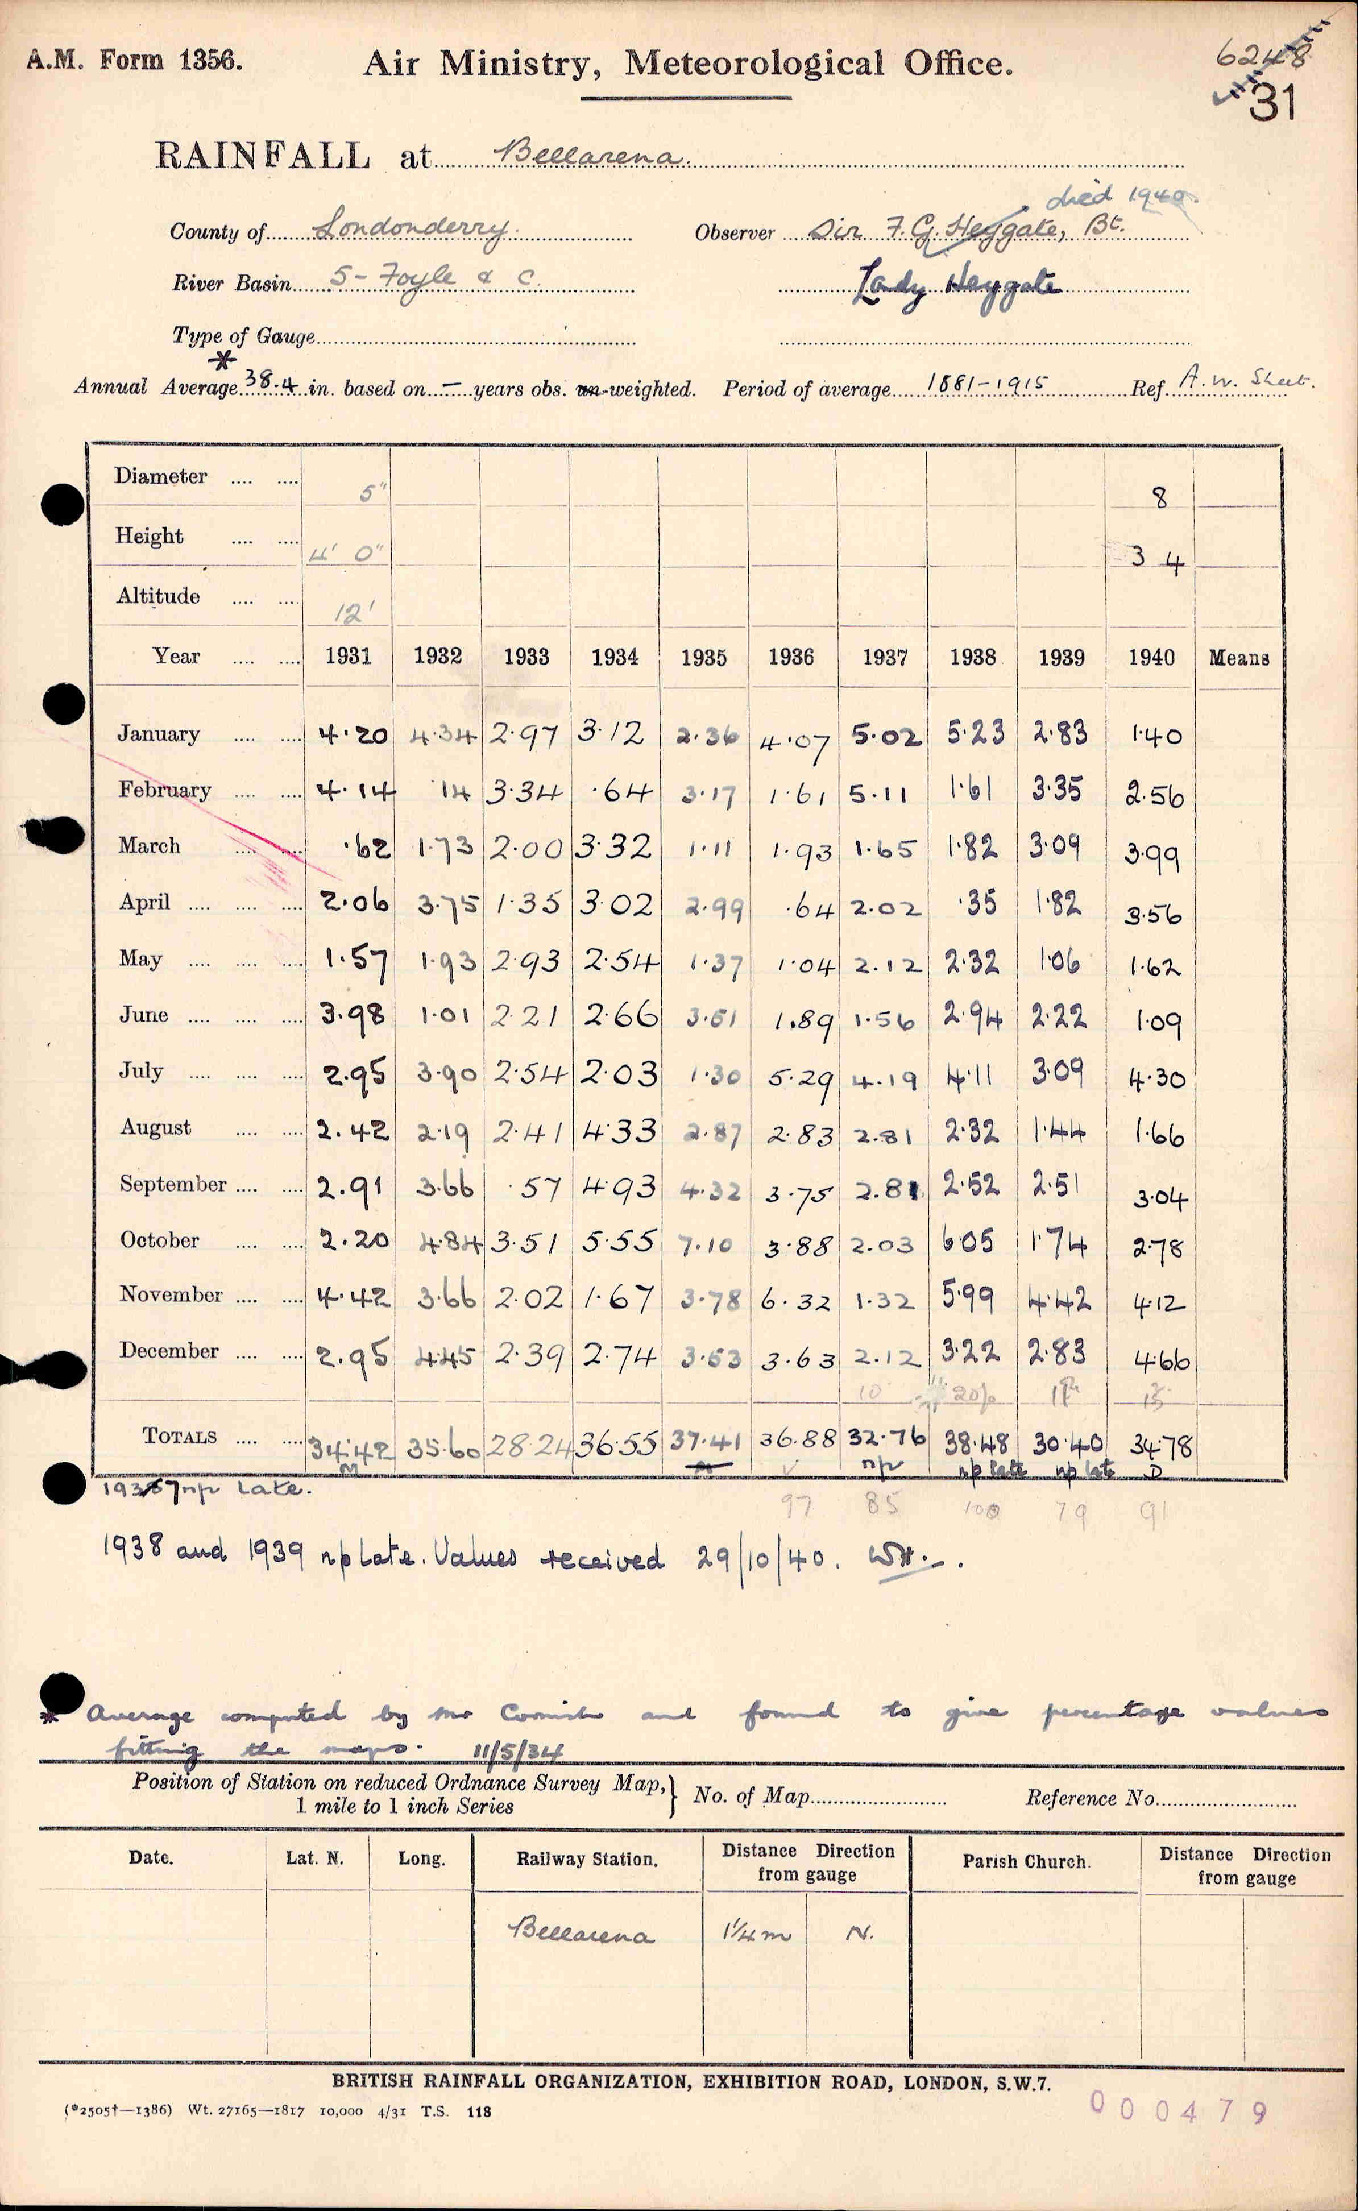 A.M. Form 1356.
Air Ministry, Meteorological Office.
6248
31
RAINFALL at Bellarena.
died 1940.
County of Londonderry. Observer Sir F. G. Heygate, Bt.
River Basin 5 - Foyle & C. Lady Heygate
Type of Gauge
*
Annual Average 38.4 in. based on — years obs. un-weighted. Period of average 1881-1915 Ref. A.W. Sheet.
Diameter 5" 8
Height 4' 0" 3 4
Altitude 12'
Year 1931 1932 1933 1934 1935 1936 1937 1938 1939 1940 Means
January 4.20 4.34 2.97 3.12 2.36 4.07 5.02 5.23 2.83 1.40
February 4.14 .14 3.34 .64 3.17 1.61 5.11 1.61 3.35 2.56
March .62 1.73 2.00 3.32 1.11 1.93 1.65 1.82 3.09 3.99
April 2.06 3.75 1.35 3.02 2.99 .64 2.02 .35 1.82 3.56
May 1.57 1.93 2.93 2.54 1.37 1.04 2.12 2.32 1.06 1.62
June 3.98 1.01 2.21 2.66 3.51 1.89 1.56 2.94 2.22 1.09
July 2.95 3.90 2.54 2.03 1.30 5.29 4.19 4.11 3.09 4.30
August 2.42 2.19 2.41 4.33 2.87 2.83 2.81 2.32 1.44 1.66
September 2.91 3.66 .57 4.93 4.32 3.75 2.81 2.52 2.51 3.04
October 2.20 4.84 3.51 5.55 7.10 3.88 2.03 6.05 1.74 2.78
November 4.42 3.66 2.02 1.67 3.78 6.32 1.32 5.99 4.42 4.12
December 2.95 4.45 2.39 2.74 3.53 3.63 2.12 3.22 2.83 4.66
TOTALS 34.42 35.60 28.24 36.55 37.41 36.88 32.76 38.48 30.40 34.78
M np np late np late D
1937 np late.
97 85 100 79 91
1938 and 1939 np late. Values received 29/10/40. WH.
* Average computed by Mr Cornish and found to give percentage values
fitting the maps. 11/5/34
Position of Station on reduced Ordnance Survey Map,
1 mile to 1 inch Series
No. of Map
Reference No.
Date. Lat. N. Long. Railway Station. Distance Direction from gauge Parish Church. Distance Direction from gauge
Bellarena 1¼m N.
BRITISH RAINFALL ORGANIZATION, EXHIBITION ROAD, LONDON, S.W.7.
(*2505†—1386) Wt. 27165—1817 10,000 4/31 T.S. 118
000479